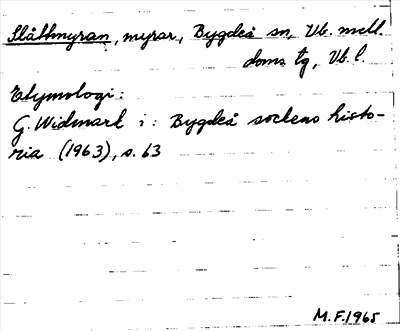 Slåttmyran, myrar, Bygdeå sn, Vb. mell.
doms tg, Vb. l.
Etymologi:
G. Widmark i: Bygdeå sockens histo-
ria (1963), s. 63
M.F. 1965